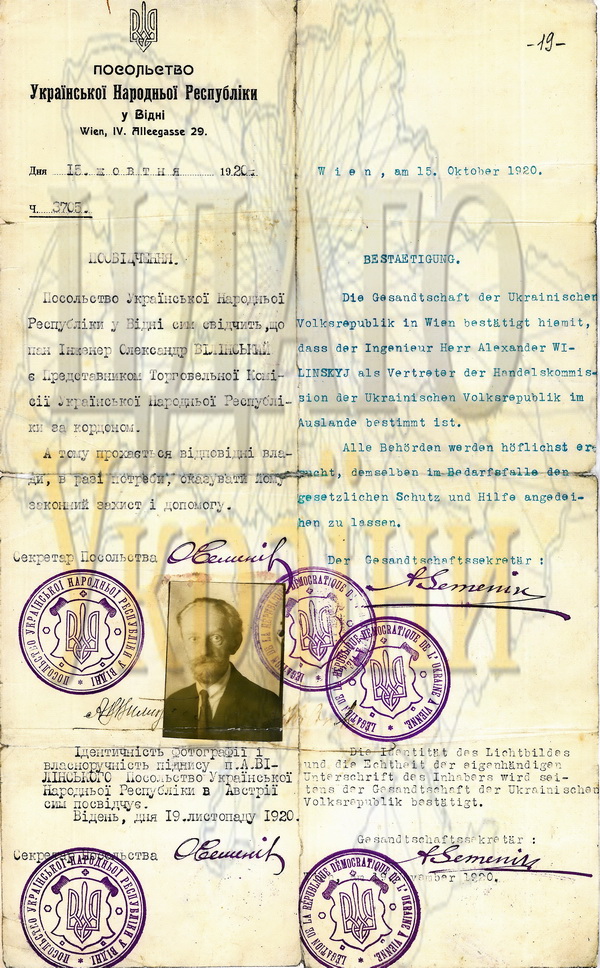 -19-
ПОСОЛЬСТВО
Української Народньої Республіки
у Відні
Wien, IV. Alleegasse 29.
Дня 15. жовтня 1920р.
Ч. 3705.
ПОСВІДЧЕННЯ.
Посольство Української Народньої
Республіки у Відні сим свідчить,що
пан Інженер Олександр ВІЛІНСЬКИЙ
є Представником Торговельної Комі-
сії Української Народньої Республі-
ки за кордоном.
А тому прохається відповідні вла-
ди, в разі потреби, оказувати йому
законний захист і допомогу.
Секретар Посольства ОСеменів
Wien, am 15. Oktober 1920.
BESTAETIGUNG.
Die Gesandtschaft der Ukrainischen
Volksrepublik in Wien bestätigt hiemit,
dass der Ingenieur Herr Alexander WI-
LINSKYJ als Vertreter der Handelskommis-
sion der Ukrainischen Volksrepublik im
Auslande bestimmt ist.
Alle Behörden werden höflichst er-
sucht, demselben im Bedarfsfalle den
gesetzlichen Schutz und Hilfe angedei-
hen zu lassen.
Der Gesandtschaftssekretär :
A Semeniv
ПОСОЛЬСТВО УКРАЇНСЬКОЇ НАРОДНЬОЇ РЕСПУБЛІКИ У ВІДНІ
LEGATION DE LA RÉPUBLIQUE DÉMOCRATIQUE DE L'UKRAINE A VIENNE.
LEGATION DE LA RÉPUBLIQUE DÉMOCRATIQUE DE L'UKRAINE A VIENNE.
Ідентичність фотографії і
власноручність підпису п.А.ВІ-
ЛІНСЬКОГО Посольство Української
Народньої Республіки в Австрії
сим посвідчує.
Відень, дня 19.листопаду 1920.
Секретар Посольства ОСеменів
Die Identität des Lichtbildes
und die Echtheit der eigenhändigen
Unterschrift des Inhabers wird sei-
tens der Gesandtschaft der Ukrainischen
Volksrepublik bestätigt.
Gesandtschaftssekretär :
A Semeniv
November 1920.
ПОСОЛЬСТВО УКРАЇНСЬКОЇ НАРОДНЬОЇ РЕСПУБЛІКИ У ВІДНІ
LEGATION DE LA RÉPUBLIQUE DÉMOCRATIQUE DE L'UKRAINE A VIENNE.
ЦДАГО
України